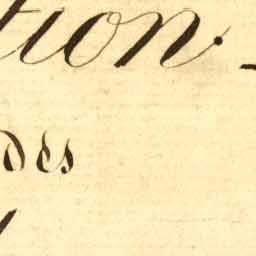 tion.
des